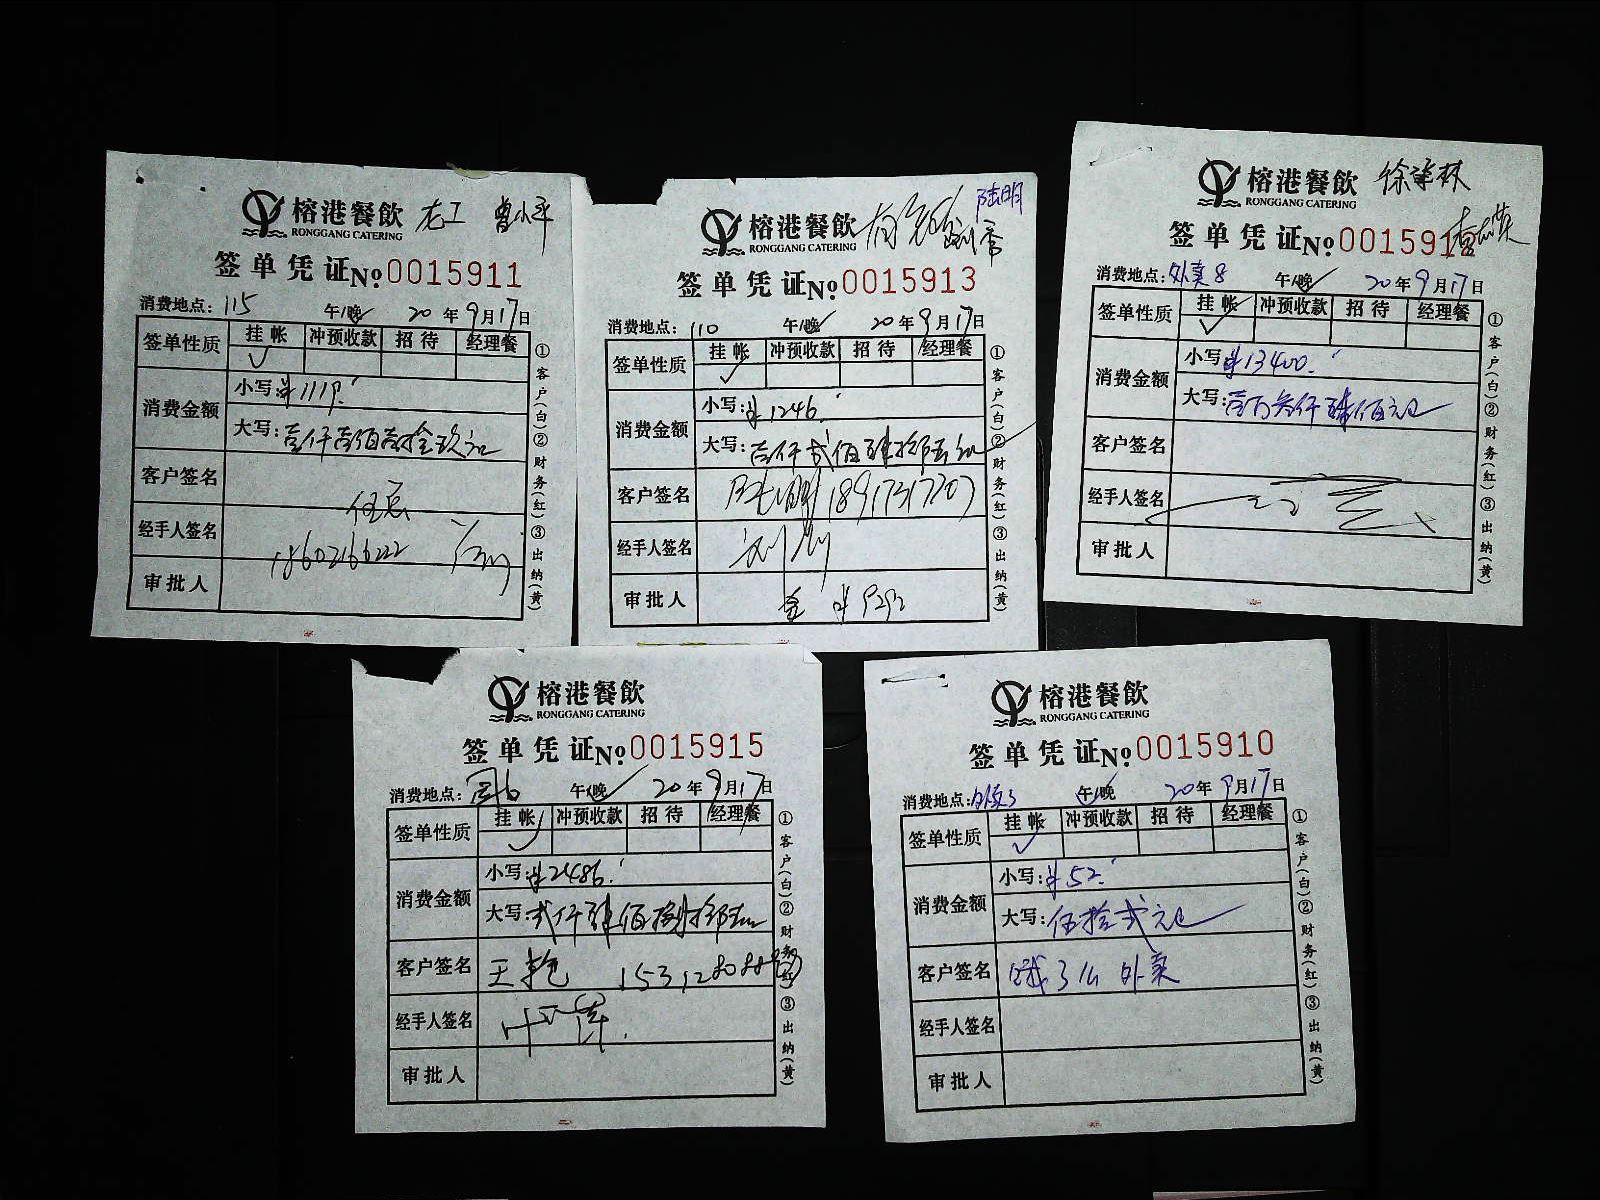 榕港餐飲 龙工 曾小平
RONGGANG CATERING
签单凭证No 0015911
消费地点：115 午/晚 20年9月17日
签单性质 挂帐 冲预收款 招待 经理餐
✓
消费金额 小写：¥1119.
大写：壹仟壹佰壹拾玖元
客户签名
经手人签名
18602166222
审批人
①客户（白）②财务（红）③出纳（黄）
榕港餐飲 陆明
RONGGANG CATERING
签单凭证No 0015913
消费地点：110 午/晚 20年9月17日
签单性质 挂帐 冲预收款 招待 经理餐
✓
消费金额 小写：¥1246.
大写：壹仟贰佰肆拾陆元
客户签名 陆明 18917317207
经手人签名
审批人
①客户（白）②财务（红）③出纳（黄）
榕港餐飲
RONGGANG CATERING
签单凭证No 001591
消费地点：外卖8 午/晚 20年9月17日
签单性质 挂帐 冲预收款 招待 经理餐
✓
消费金额 小写：¥13400.
大写：壹万叁仟肆佰元
客户签名
经手人签名
审批人
①客户（白）②财务（红）③出纳（黄）
榕港餐飲
RONGGANG CATERING
签单凭证No 0015915
消费地点： 午/晚 20年9月17日
签单性质 挂帐 冲预收款 招待 经理餐
✓
消费金额 小写：¥2486.
大写：贰仟肆佰捌拾陆元
客户签名 王艳
经手人签名
审批人
①客户（白）②财务（红）③出纳（黄）
榕港餐飲
RONGGANG CATERING
签单凭证No 0015910
消费地点：外卖3 午/晚 20年9月17日
签单性质 挂帐 冲预收款 招待 经理餐
✓
消费金额 小写：¥52.
大写：伍拾贰元
客户签名 饿了么外卖
经手人签名
审批人
①客户（白）②财务（红）③出纳（黄）